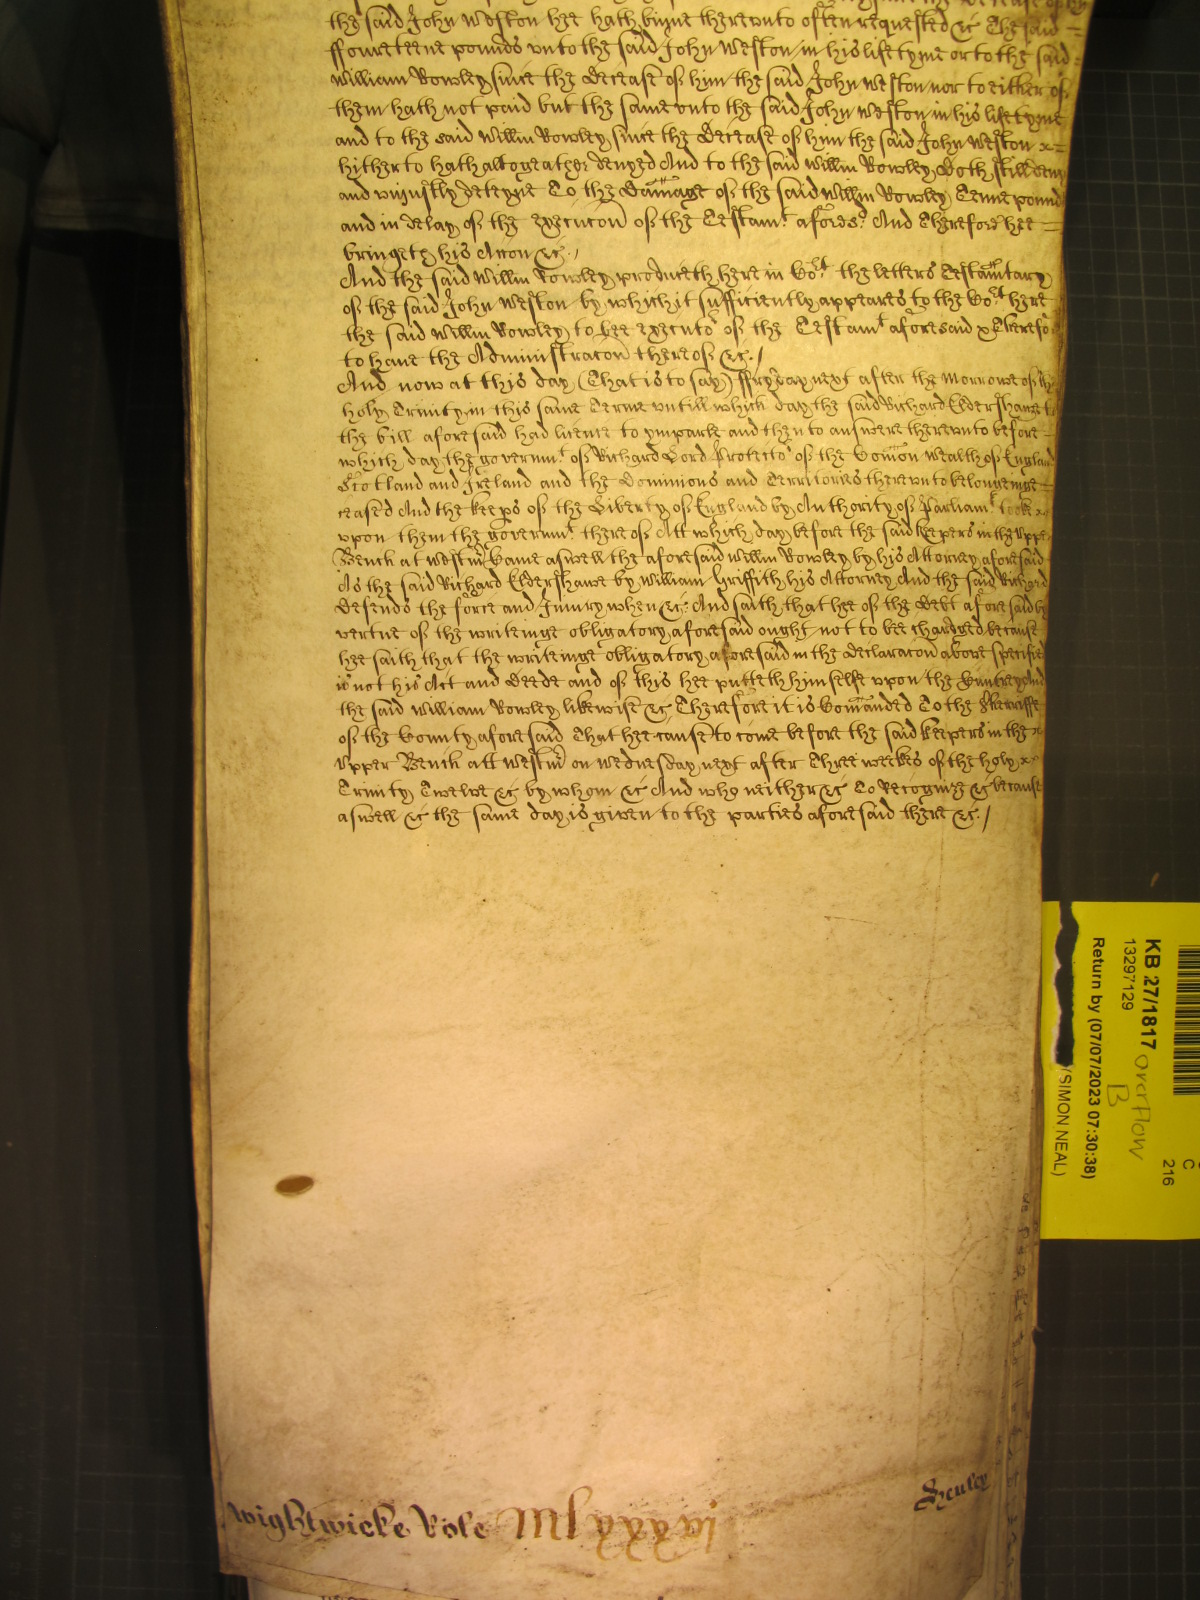 the said John Weston hee hath binne therevnto often requested &c The said =
ffowerteene pounds vnto the said John Weston in his life tyme or to the said =
William Rowley since the decease of him the said John Weston nor to either of
them hath not paid but the same vnto the said John Weston in his life tyme
and to the said Willm Rowley since the decease of him the said John Weston x=
hitherto hath altogeather denyed And to the said Willm Rowley doth still deny
and uniustly deteyne To the damage of the said Willm Rowley Tenne pound
and in delay of the execucon of the Testamt aforesd And Therefore hee =
bringeth his Accon &c /
And the said Willm Rowley produceth here in Cort the letters Testamtary
of the said John Weston by which it sufficiently appeares to the Cort here
the said Willm Rowley to bee executor of the Testamt aforesaid & Therefore
to haue the Administracon thereof &c /
And now at this day (That is to say) ffryday next after the Morrowe of the
holy Trinity in this same Terme vntill which day the said Richard Eldershawe to
the bill aforesaid had licence to imparle and then to answere therevnto before =
which day the governmt of Richard Lord Protector of the Comon wealth of England
Scotland and Ireland and the Dominions and Territories therevnto belonginge =
ceased And the keeps of the Liberty of England by Authority of Parliamt tooke x
vpon them the governmt thereof Att which day before the said keepers in the vpper
Bench at Westmr Came aswell the aforesaid Willm Rowley by his Attorney aforesaid
As the said Richard Eldershawe by William Griffith his Attorney And the said Richard
defends the force and Iniury when &c And saith that hee of the debt aforesaid by
vertue of the writeinge obligatory aforesaid ought not to bee chardged because
hee saith that the writeinge obligatory aforesaid in the declaracon above specified
is not his Act and deede and of this hee putteth himselfe vpon the Cuntrey And
the said William Rowley likewise &c Therefore it is Comanded To the Sherriffe
of the County aforesaid That hee cause to come before the said keepers in the x
vpper Bench att Westmr on wednesday next after Three weekes of the holy x
Trinity Twelve &c by whom &c And who neither &c To Recognize &c because
aswell &c the same day is given to the parties aforesaid there &c /
Wightwicke Role Mlxxxxvj
KB 27/1817
overflow
B
13297129
Return by (07/07/2023 07:30:38)
(SIMON NEAL)
C
216